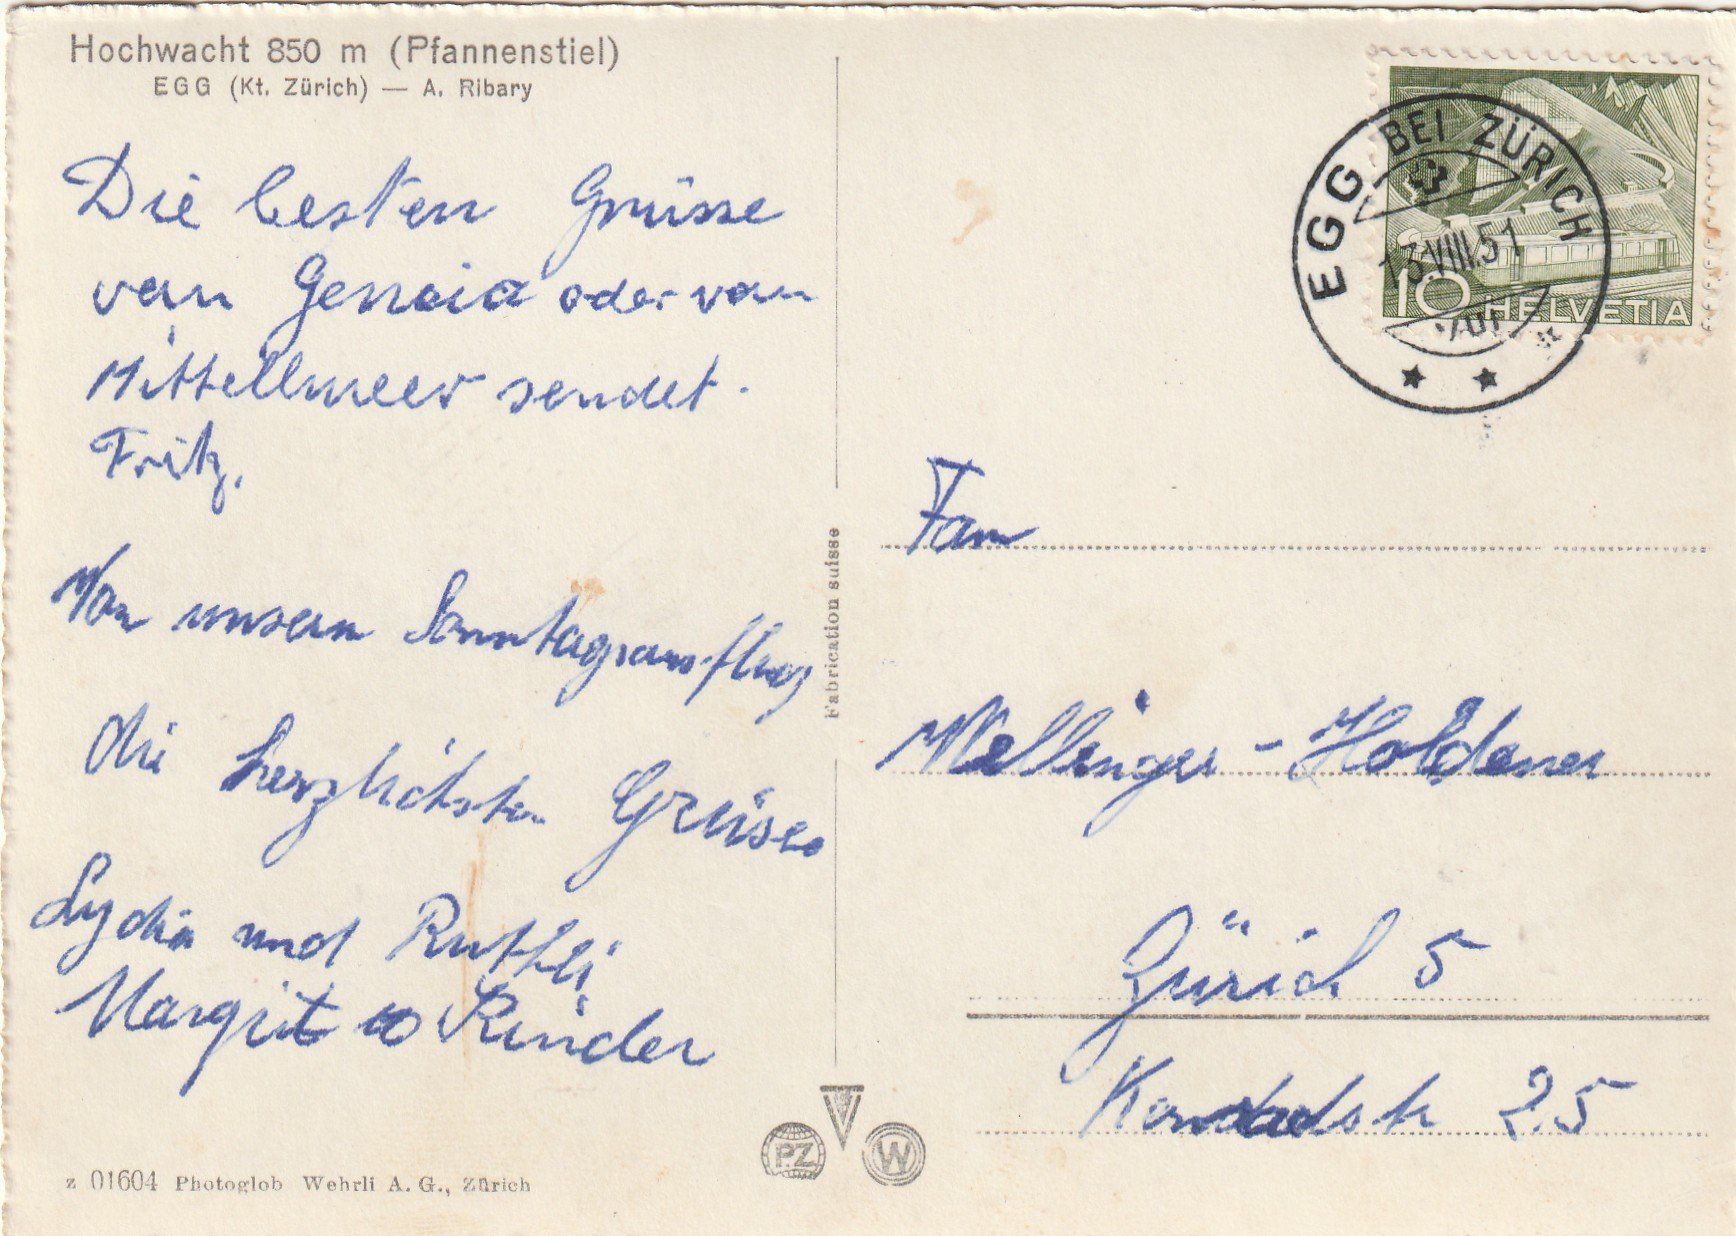 Hochwacht 850 m (Pfannenstiel)
EGG (Kt. Zürich) — A. Ribary
Die besten Grüsse
von Geneia oder vom
Mittellmeer sendet.
Fritz.
Von unsern Sonntagsausflug
die herzlichsten Grüsse
Lydia und Ruthli
Margrit Kinder
z 01604 Photoglob Wehrli A. G., Zürich
Fabrication suisse
PZ
W
EGG BEI ZÜRICH
13.VIII.51
10 HELVETIA
Fam
Mellinger-Holdener
Zürich 5
25